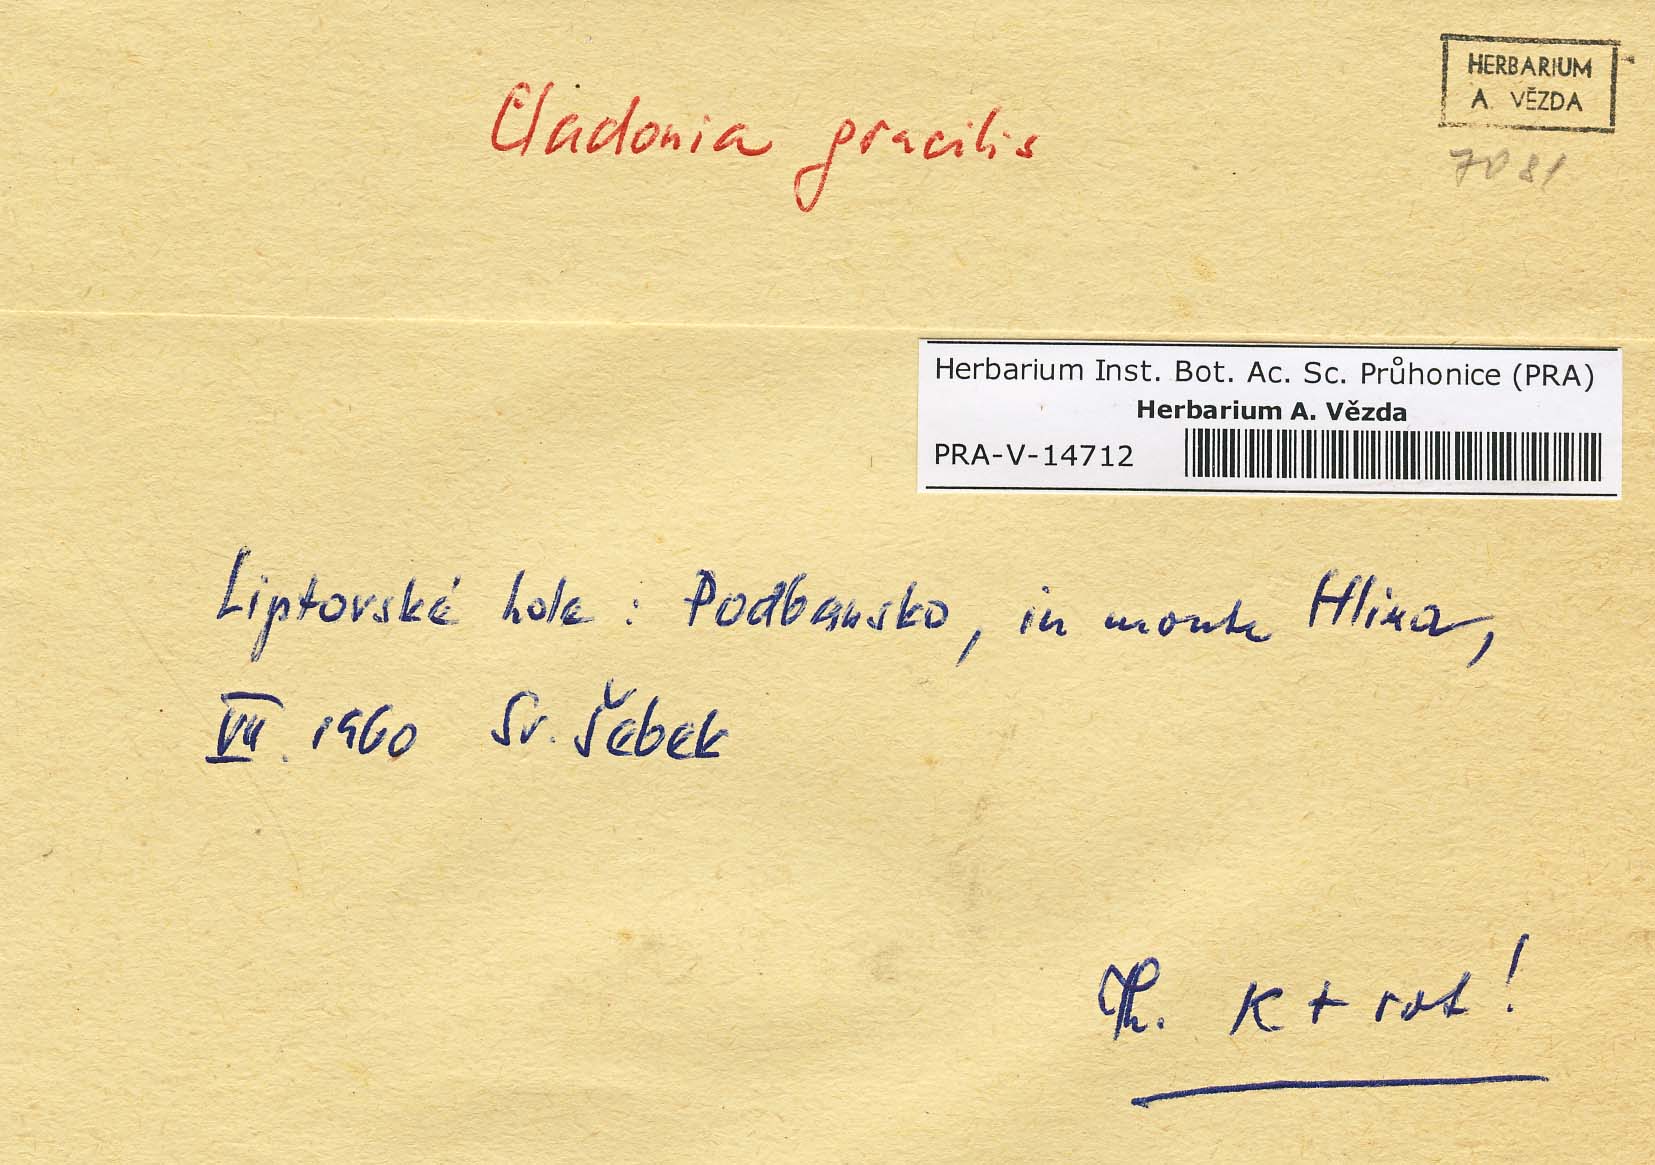 Cladonia gracilis
HERBARIUM
A. VĚZDA
7081
Herbarium Inst. Bot. Ac. Sc. Průhonice (PRA)
Herbarium A. Vězda
PRA-V-14712
Liptovské hole : Podbansko, in monte Hlina,
VII. 1960 Sv. Šebek
Th. K + rot!